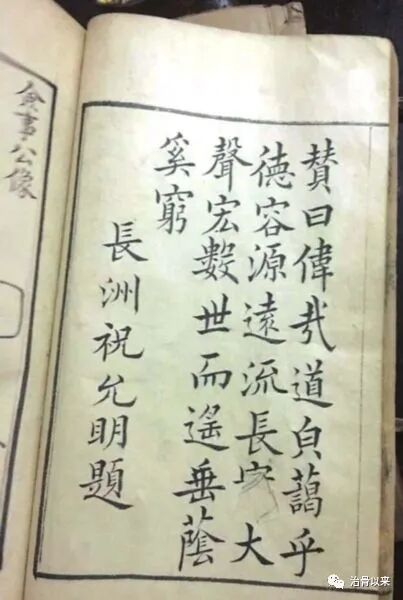 賛曰偉哉道皃藹乎
德容源遠流長家大
聲宏數世而遙垂蔭
奚窮
長洲祝允明題
僉事公像
治骨以来